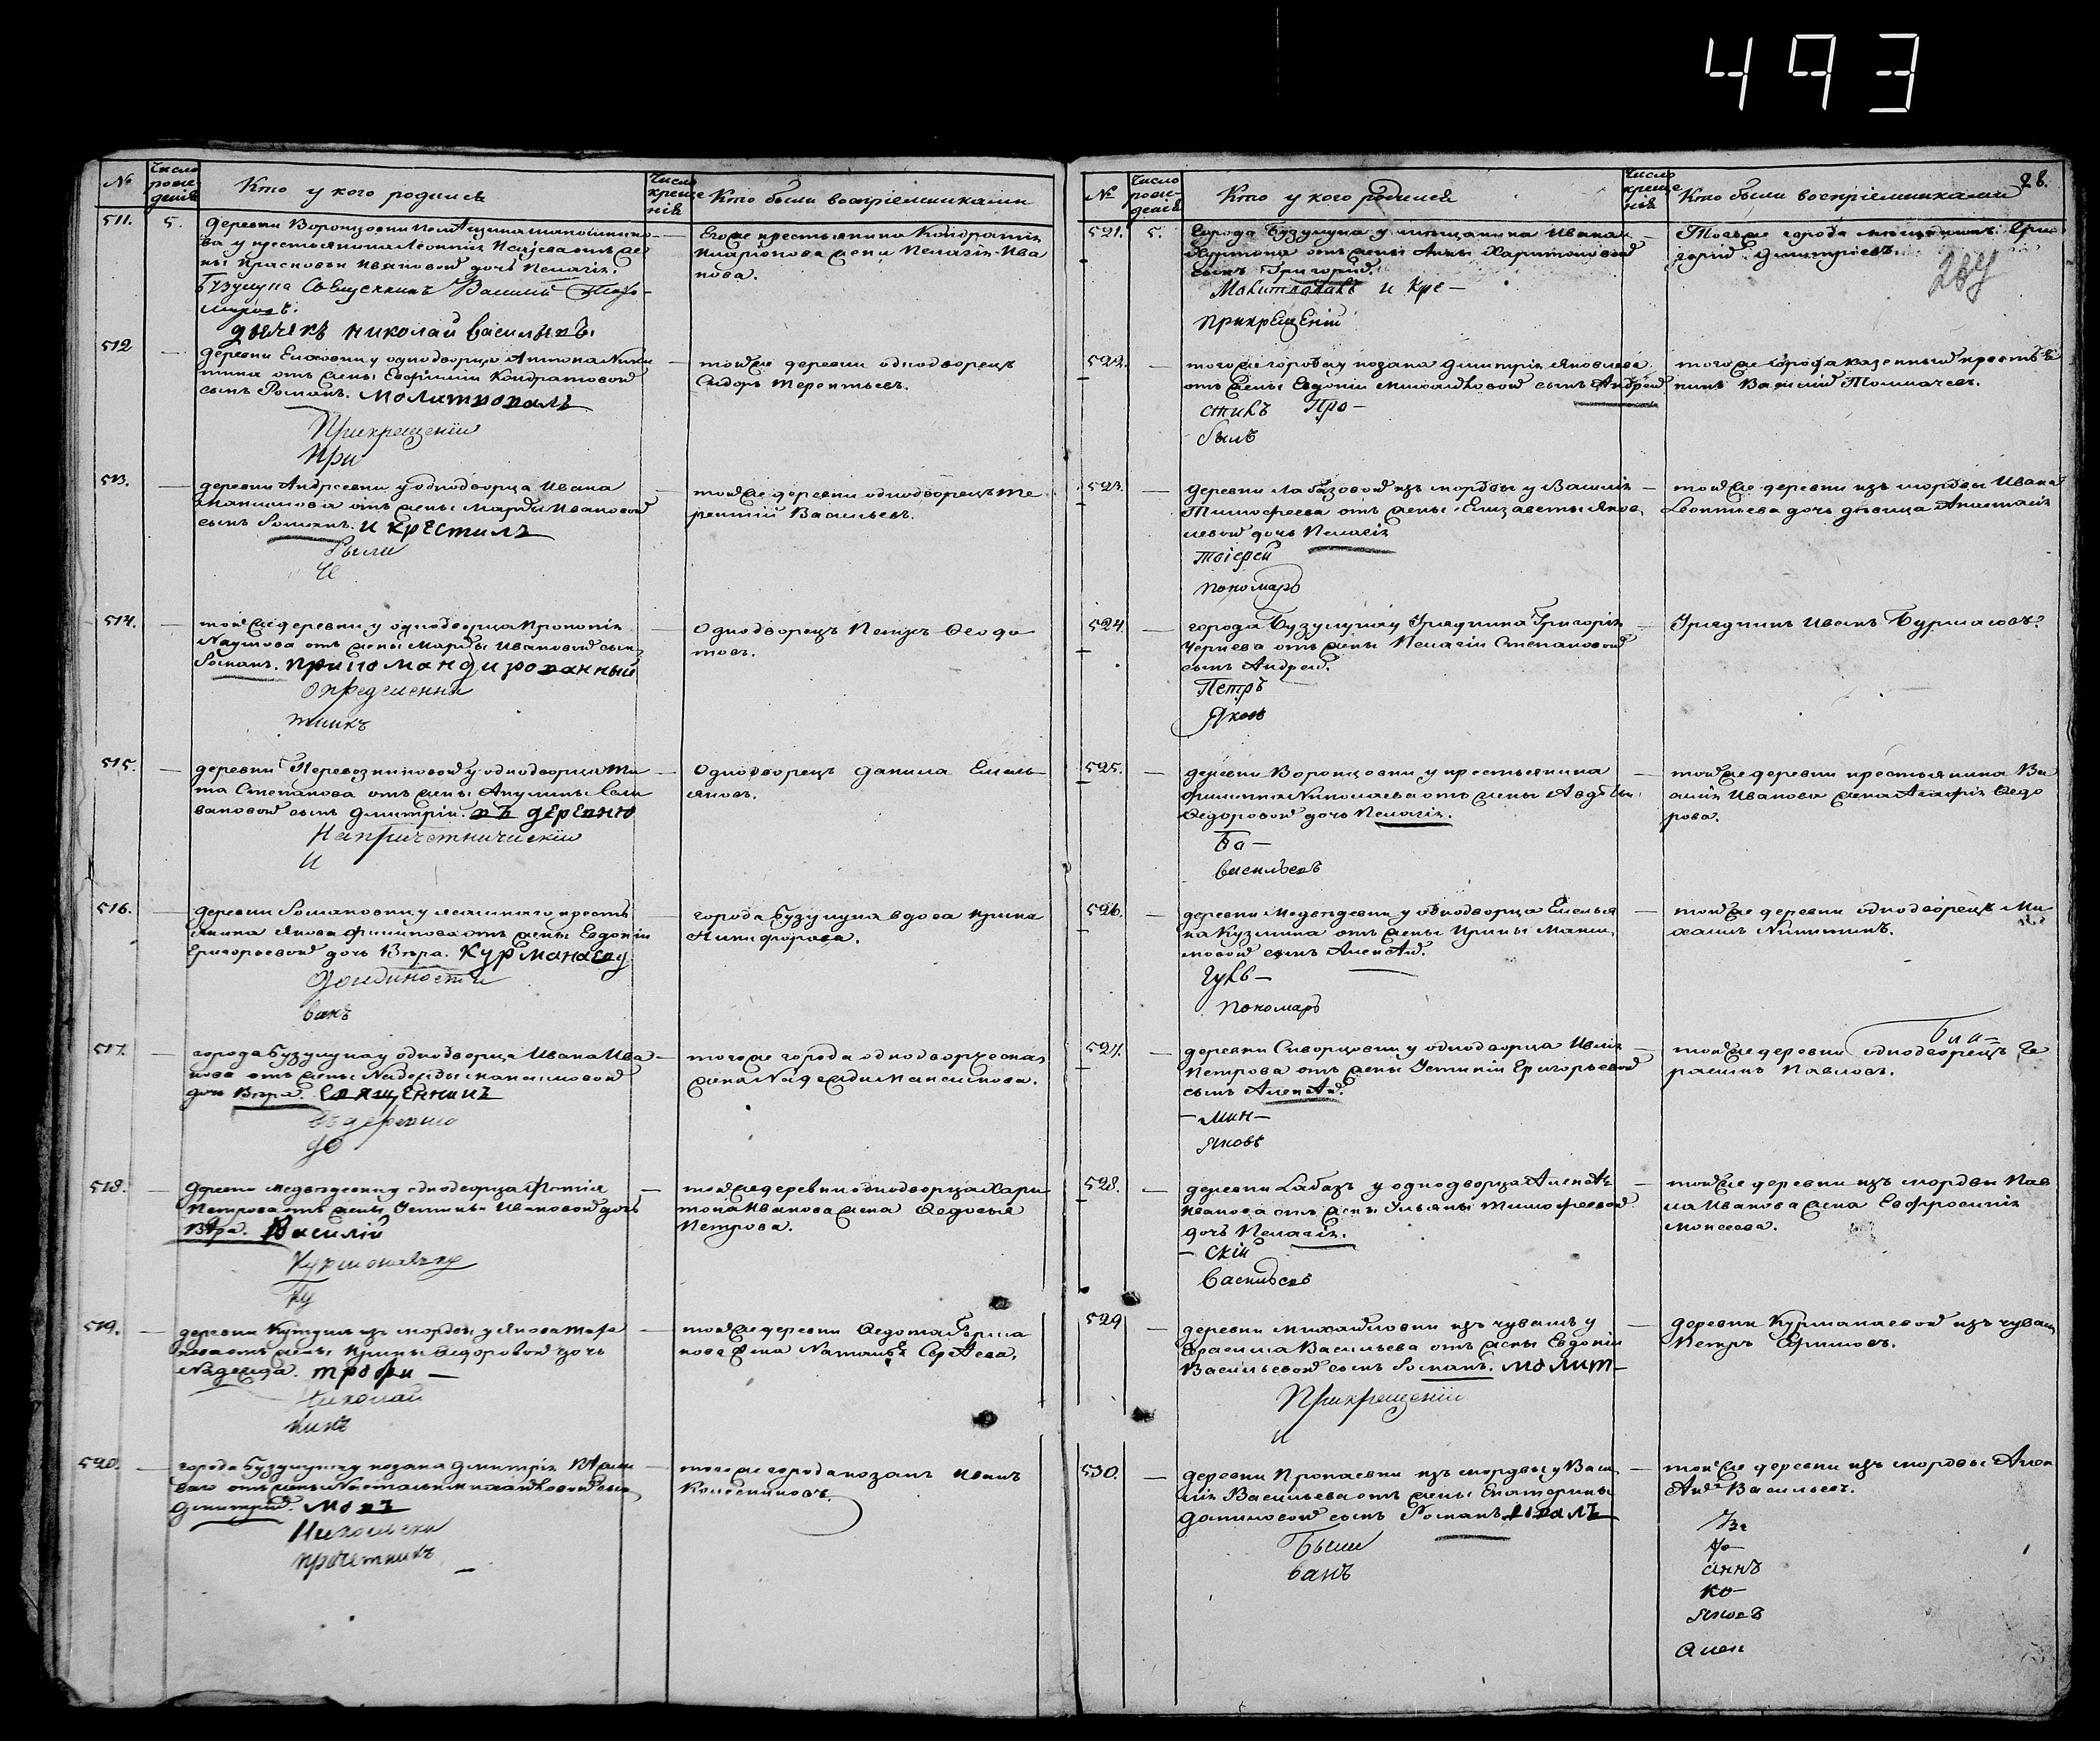 493
№
Число
рожде
денія
Кто у кого родился
Число
креще
нія
Кто были воспріемниками
511.
5.
деревни Воронцовки
ва у крестьянина Леонтія отъ же
ны Прасковьи Ивановой дочь Пелагія.
Бузулука Священникъ Василий Тихо-
міровъ.
дьячекъ николай васильевъ
Егоже крестьянина Кондратія
Иларіонова жена Пелагія Ива
нова.
512
—
деревни Елховки у однодворца Антона Ники
тина отъ жены Евфиміи Кондратовой
сынъ Романъ. молитвовалъ
Прикрещеніи
При
—
тойже деревни однодворецъ
Сидоръ Терентьевъ.
513.
—
деревни Андреевки у однодворца Ивана
Максимова отъ жены Марфы Ивановой
сынъ Романъ. и крестилъ
были
—
тойже деревни однодворецъ Те
рентій Васильевъ.
514.
—
тойже деревни у однодворца Прокопія
Наумова отъ жены Марфы Ивановой сынъ
Романъ. прикомандированный
опредъленна
тникъ
Однодворецъ Петръ Федо
товъ.
515.
—
деревни Перевозниковой у однодворца Ти
та Степанова отъ жены Акулины Сели
вановой сынъ Дмитрій. въ деревню
Напричетнической
и
—
Однодворецъ Данила Емель
яновъ.
516.
—
деревни Романовки у крестъ
янина Якова Филипова отъ жены Евдокіи
Григорьевой дочь Вѣра. Курманаеву
Должности
ванъ
города Бузулука вдова Ирина
Никифорова.
517.
—
города Бузулука у однодворца Ивана Ива
нова отъ жены Надежды Максимовой
дочь Вѣра. Священникъ
въ деревню
до
—
тогоже города однодворческая
жена Надежда Максимова.
518.
—
деревни Медведевки у однодворца Фотія
Петрова отъ жены Устиньи Ивановой дочь
Вѣра. Василій
Курманаевку
Ку
—
тойже деревни однодворца Хари
тона Иванова жена Федосья
Петрова.
519.
—
деревни Кутуши изъ мордвы у Якова
отъ жены Ирины Федоровой дочь
Надежда. трофи —
Николай
кинъ
—
тойже деревни Федота Ерма
кова жена Наталья Сергеева.
520.
—
города Бузулука у козака Дмитрія
отъ жены Настасьи Михайловой сынъ
Дмитрій. мовъ
Никольски
прочетникъ
—
тогоже города козакъ Иванъ
Колесниковъ.
№
Число
рож-
денія
Кто у кого родился
Число
креще
нія
Кто были воспріемниками
28.
521.
5.
Города Бузулука у мещанина Ивана
Харитона отъ жены Анны Харитоновой
сынъ Григорій.
Молитвовалъ и кре —
прикрещеніи
—
Тогоже города мещанинъ Гри
горій Дмитріевъ.
522.
—
тогоже города у козака Дмитрія Яковлева
отъ жены Евдокіи Михайловой сынъ Андрей.
стилъ Про —
былъ
тогоже города казенный крестья
нинъ Василій Толмачевъ.
523.
—
деревни Лабазовой изъ мордвы у Василія
Тимофеева отъ жены Елизаветы Яков
левой дочь Пелагія
тоіерей
пономарь
—
тойже деревни изъ мордвы Ивана
Леонтьева дочь девица Анастасія
524.
—
города Бузулука у Урядника Григорія
Чернева отъ жены Пелагіи Степановой
сынъ Андрей.
Петръ
Яковъ
—
Урядникъ Иванъ Бурмасовъ.
525.
—
деревни Воронцовки у крестьянина
Филипа Николаева отъ жены Авдотьи
Федоровой дочь Пелагія.
Ба —
васильевъ
—
тойже деревни крестьянина Ва
силія Иванова жена Агафія Федо
рова.
526.
—
деревни Медведевки у однодворца Емелья
на Кузмина отъ жены Ирины Макси
мовой сынъ Алексѣй.
Гувъ —
пономарь
—
тойже деревни однодворецъ Ми
хаилъ Никитинъ.
527.
—
деревни Скворцовки у однодворца Иліи
Петрова отъ жены Устиніи Григорьевой
сынъ Алексѣй.
— мин —
Яковъ
—
Бла =
тойже деревни однодворецъ Ге
расимъ Павловъ.
528.
—
деревни Лабазъ у однодворца Алексѣя
Иванова отъ жены Ульяны Тимофеевой
дочь Пелагія.
— скій
Васильевъ
—
тойже деревни изъ мордвы Пав
ла Иванова жена Евфросинія
Моисеева.
529
—
деревни Михайловки изъ чувашъ у
Герасима Васильева отъ жены Евдокіи
Васильевой сынъ Романъ. молит —
Прикрещеніи
и
—
деревни Курманаевой изъ чувашъ
Петръ Ефимовъ.
530.
—
деревни Пронаевки изъ мордвы у Васи
лія Васильева отъ жены Екатерины
Даниловой сынъ Романъ. вовалъ
Были
ванъ
—
тойже деревни изъ мордвы Алек
сѣй Васильевъ.
ко —
Яковъ
Алек